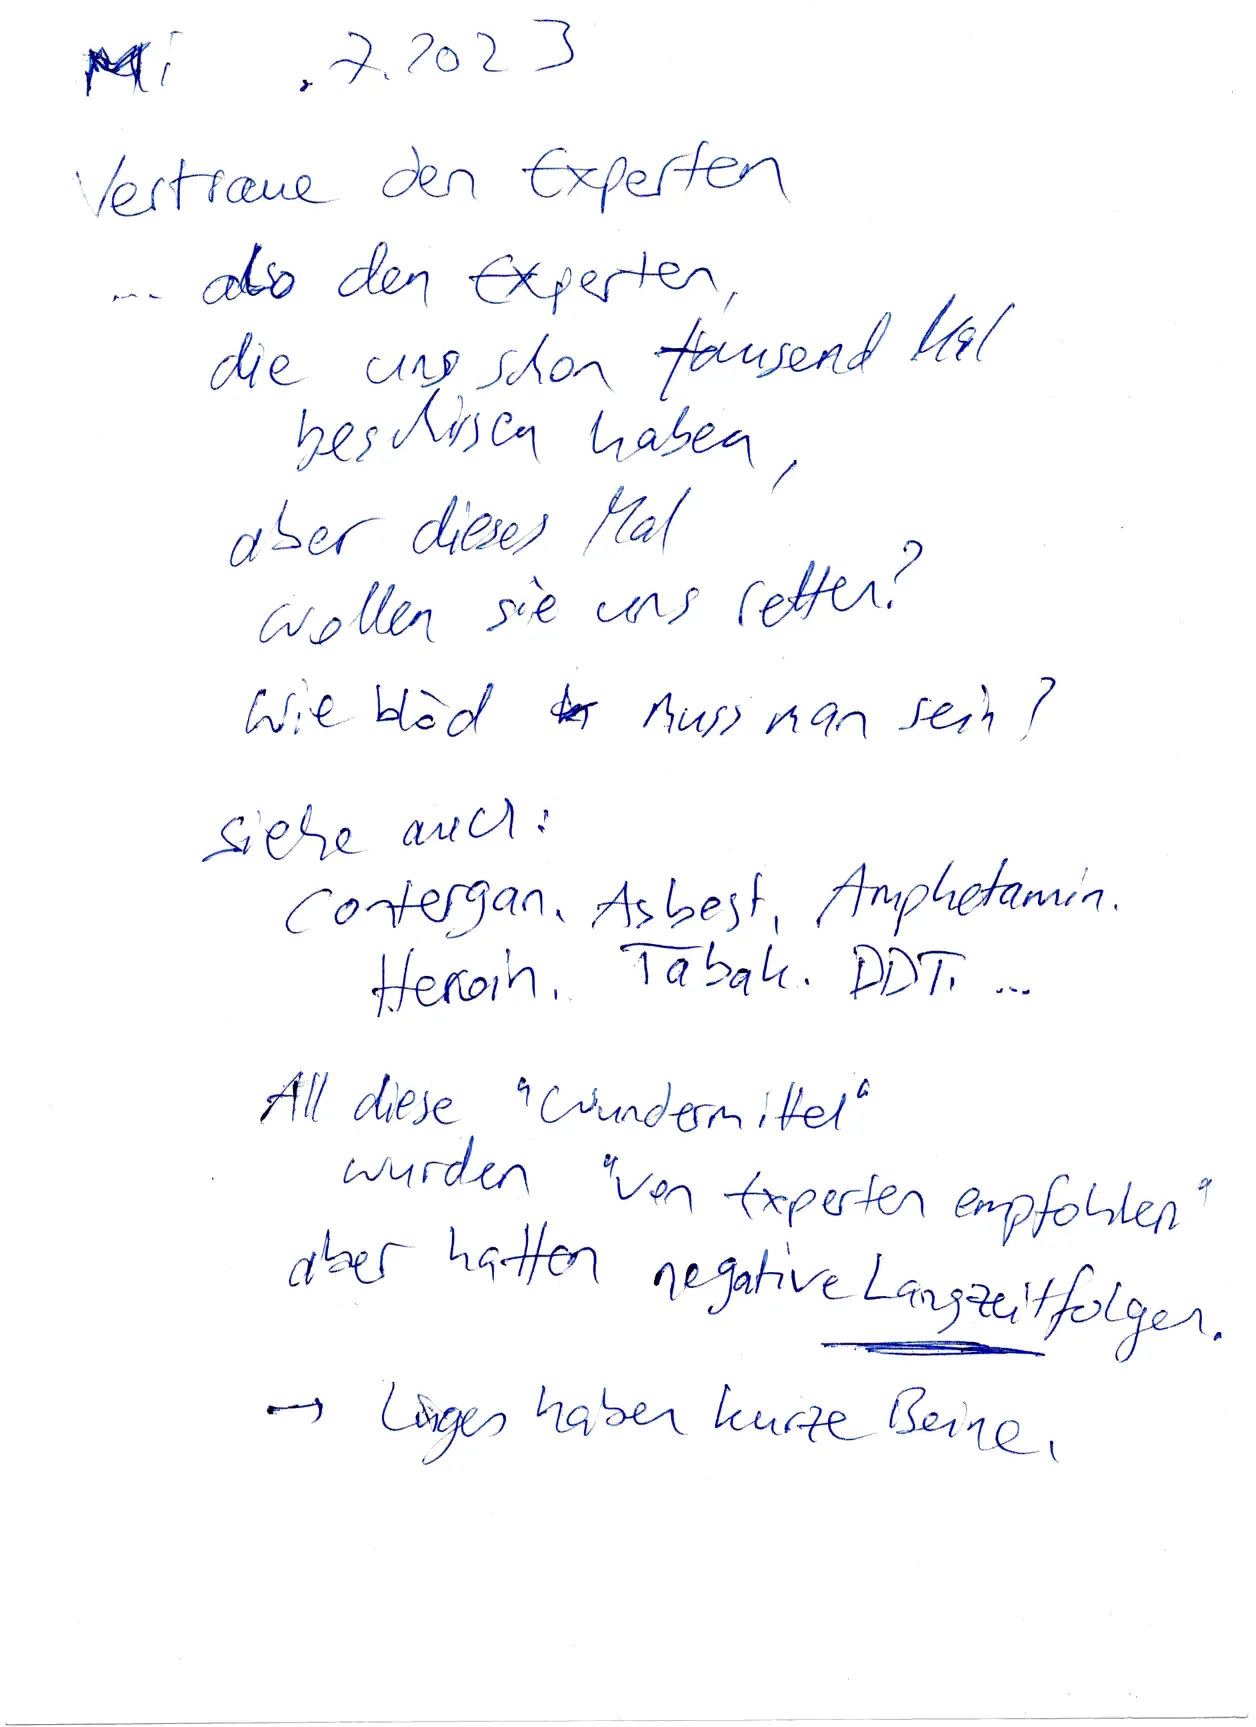 Mi .7.2023
Vertraue den Experten
... also den Experten,
die uns schon tausend Mal
beschissen haben,
aber dieses Mal
wollen sie uns retten?
wie blöd muss man sein?
siehe auch:
Contergan. Asbest. Amphetamin.
Heroin. Tabak. DDT. ...
All diese "Wundermittel"
wurden "von Experten empfohlen"
aber hatten negative Langzeitfolgen.
→ Lügen haben kurze Beine.